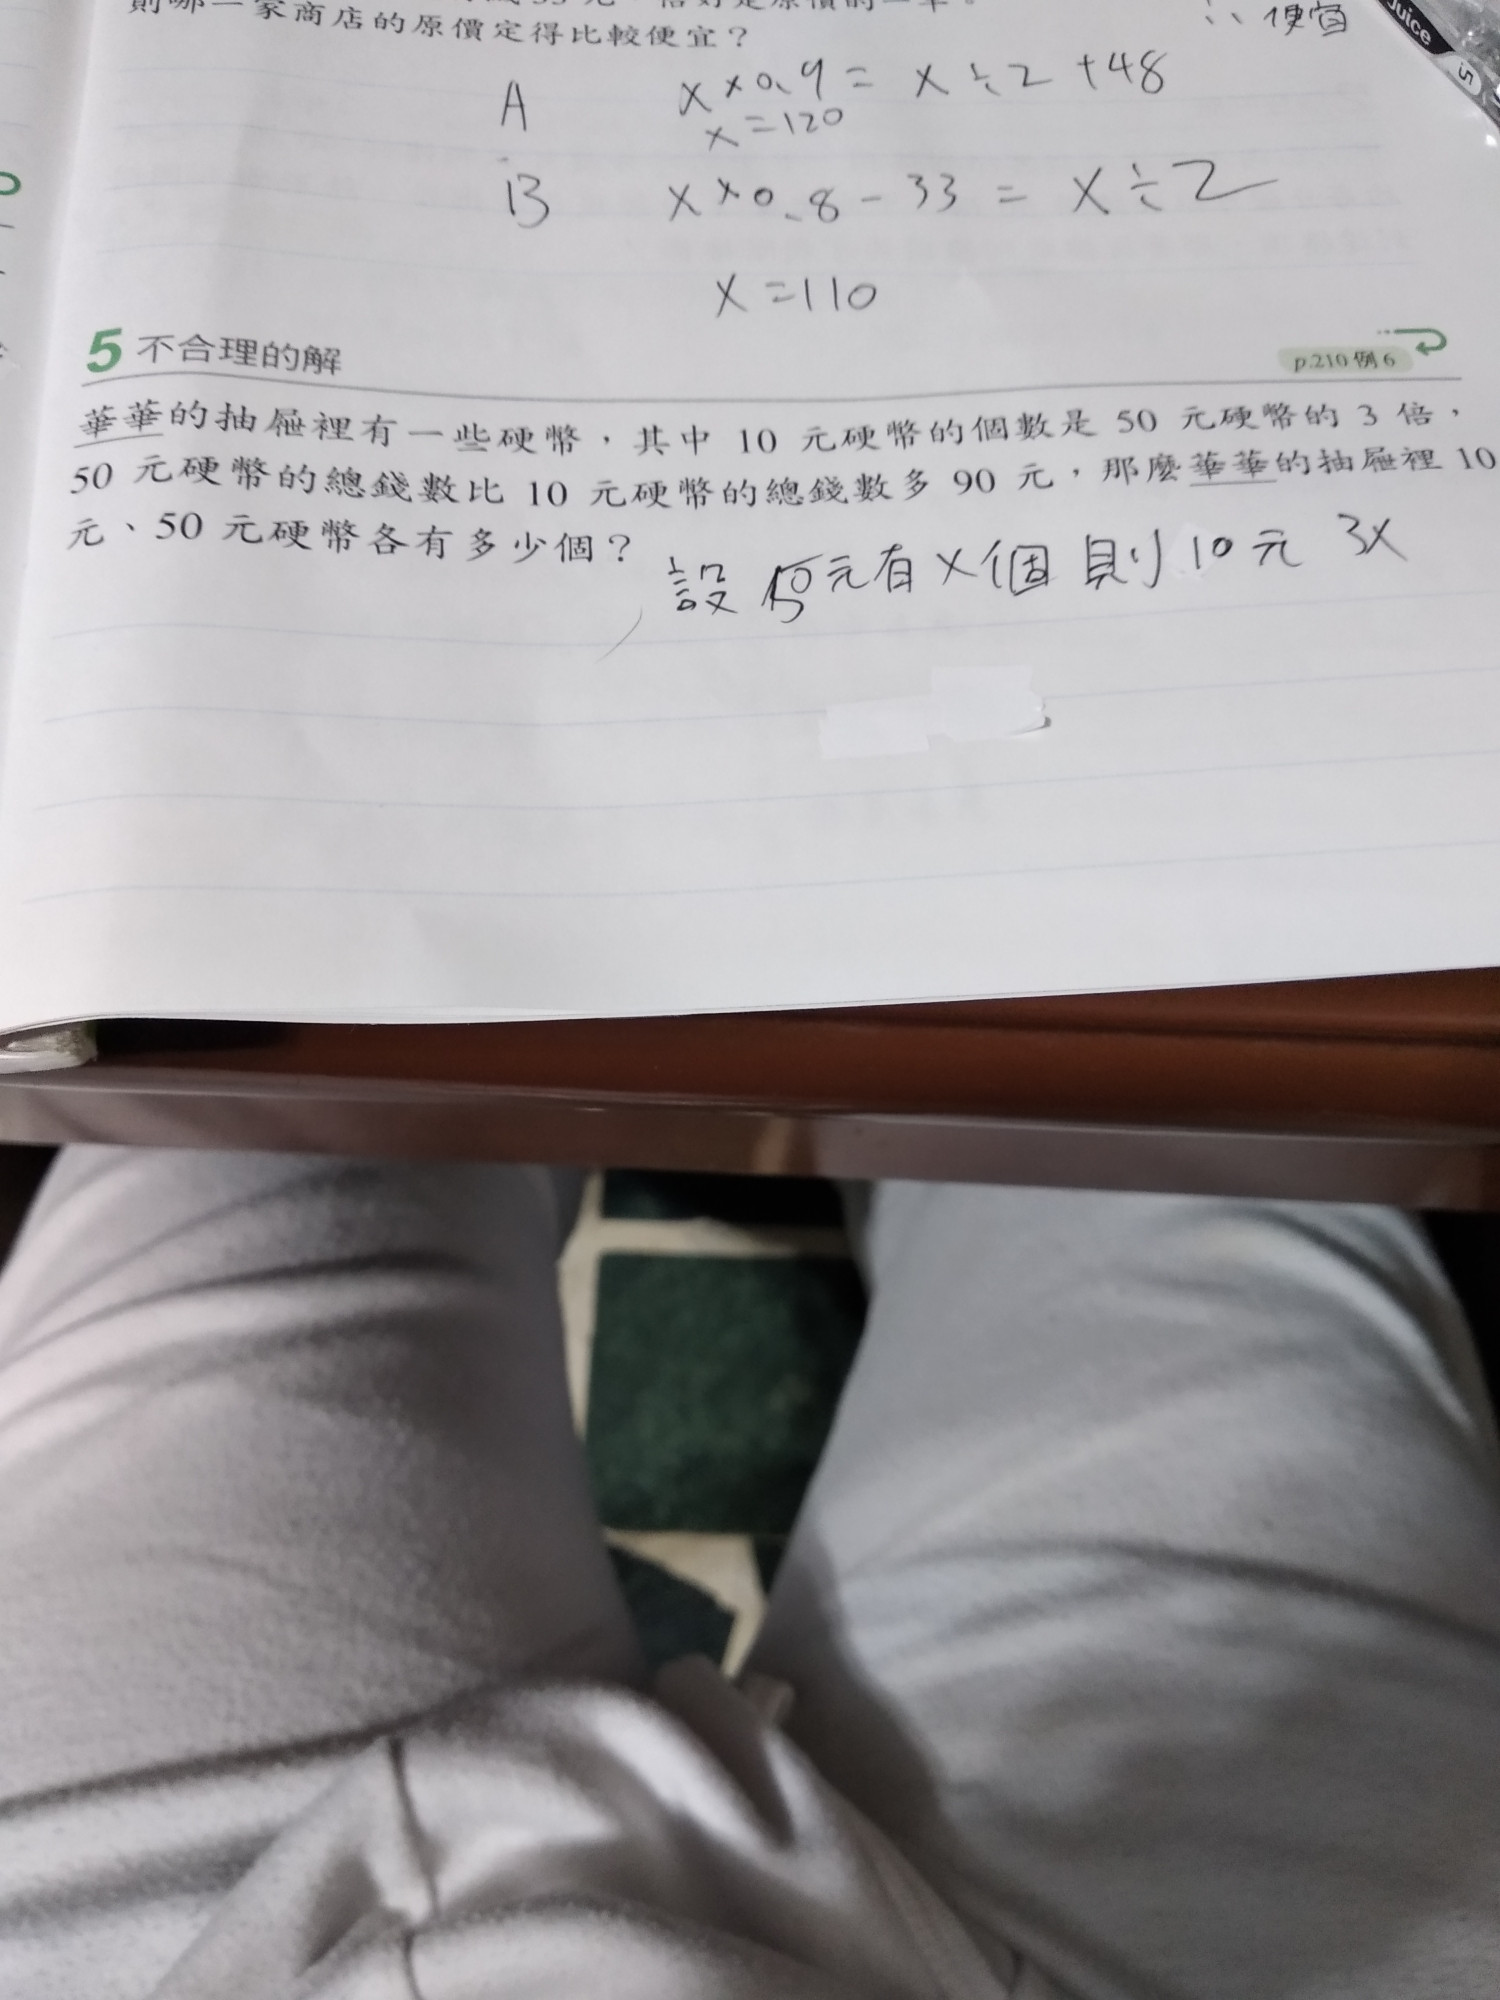 則哪一家商店的原價定得比較便宜？
∴便宜
juice
A x×0.9=x÷2+48
x=120
B x×0.8-33=x÷2
x=110
5 不合理的解
p.210 例 6
華華的抽屜裡有一些硬幣，其中 10 元硬幣的個數是 50 元硬幣的 3 倍，
50 元硬幣的總錢數比 10 元硬幣的總錢數多 90 元，那麼華華的抽屜裡 10
元、50 元硬幣各有多少個？
設 50元有x個 則10元 3x